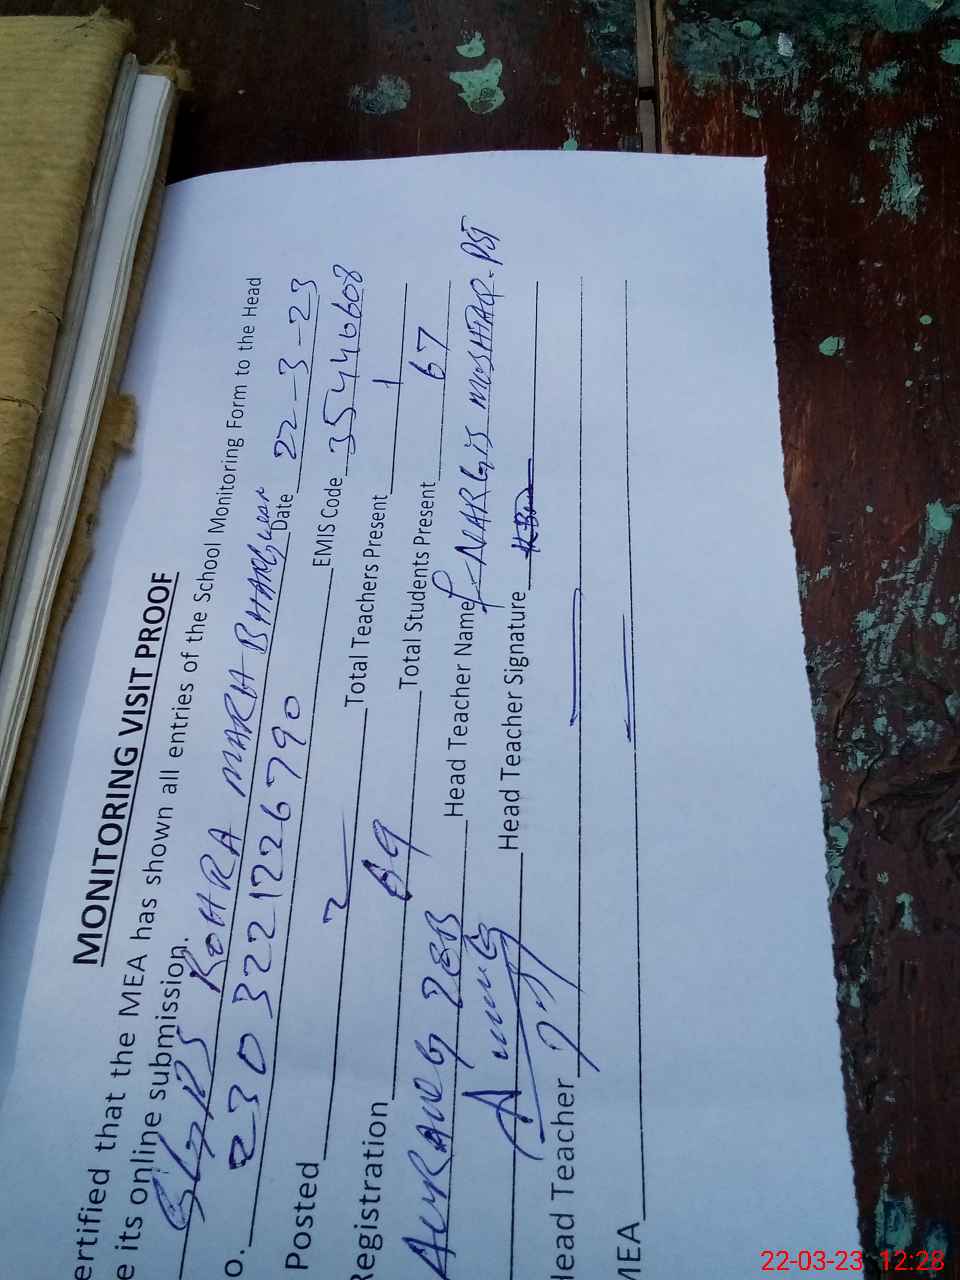 MONITORING VISIT PROOF
ertified that the MEA has shown all entries of the School Monitoring Form to the Head
e its online submission.
GGPS KOHRA MARH BHANGwan Date 22-3-23
o. 2303221226790 EMIS Code 35440608
Posted 2 Total Teachers Present 1
Registration 89 Total Students Present 67
AURANG ZEB Head Teacher Name NARGIS MUSHTAQ-PST
Head Teacher Signature
Head Teacher
MEA
22-03-23 12:28